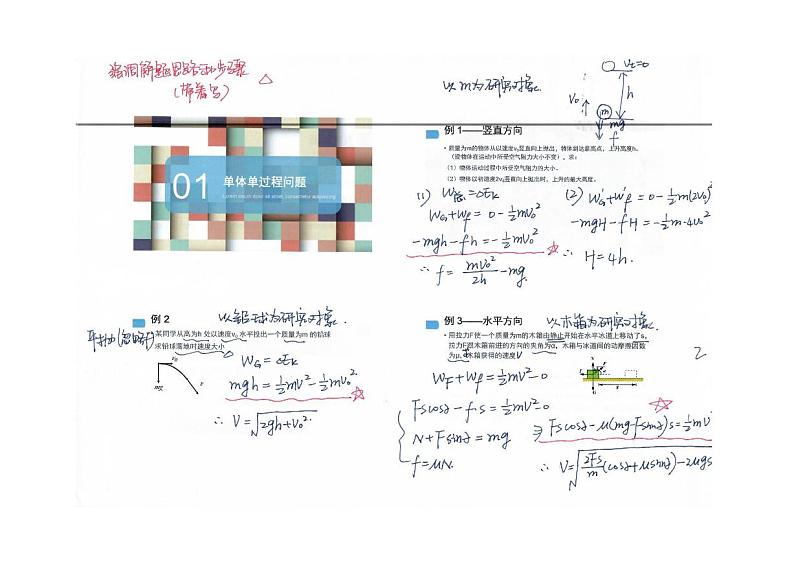 强调解题思路和步骤
(带着写)
01
单体单过程问题
Lorem ipsum dolor sit amet, consectetur adipisicing.
以m为研究对象.
Vt=0
h
V₀
m
mg
f
例 1——竖直方向
• 质量为m的物体从以速度v₀竖直向上抛出，物体到达最高点，上升高度h.
(设物体在运动中所受空气阻力大小不变)。求：
(1) 物体运动过程中所受空气阻力的大小。
(2) 物体以初速度2v₀竖直向上抛出时，上升的最大高度。
(1) W合=ΔEk
WG+Wf=0-½mv₀²
-mgh-fh=-½mv₀²
∴ f=mv₀²/2h-mg.
(2) WG'+Wf'=0-½m(2v₀)²
-mgH-fH=-½m·4v₀²
∴ H=4h.
例 2
以铅球为研究对象.
某同学从高为h 处以速度v₀ 水平投出一个质量为m 的铅球
求铅球落地时速度大小
V₀
mg
WG=ΔEk
mgh=½mv²-½mv₀²
∴ V=√2gh+V₀²
例 3——水平方向
以木箱为研究对象.
• 用拉力F使一个质量为m的木箱由静止开始在水平冰道上移动了s，
拉力F跟木箱前进的方向的夹角为α，木箱与冰道间的动摩擦因数
为μ，求木箱获得的速度V
WF+Wf=½mv²-0
Fscosα-f·s=½mv²-0
N+Fsinα=mg
f=μN.
⇒ Fscosα-μ(mg-Fsinα)s=½mv²
∴ V=√2Fs/m(cosα+μsinα)-2μgs